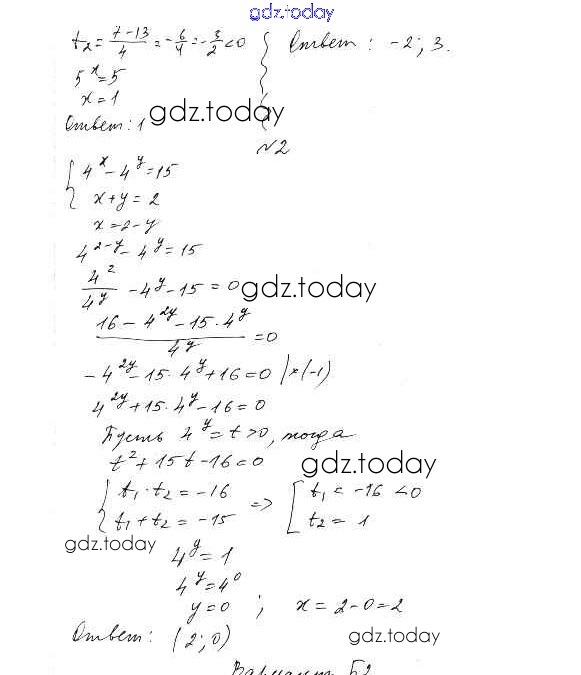 gdz.today
t₂ = (7-13)/4 = -6/4 = -3/2 < 0
5^x = 5
x = 1
Ответ: 1
Ответ: -2; 3.
gdz.today
№2
{ 4^x - 4^y = 15
x + y = 2
x = 2 - y
4^(2-y) - 4^y = 15
4²/4^y - 4^y - 15 = 0
gdz.today
(16 - 4^(2y) - 15·4^y)/4^y = 0
-4^(2y) - 15·4^y + 16 = 0 |×(-1)
4^(2y) + 15·4^y - 16 = 0
Пусть 4^y = t > 0, тогда
t² + 15t - 16 = 0
gdz.today
{ t₁·t₂ = -16
t₁ + t₂ = -15
=> [ t₁ = -16 < 0
t₂ = 1
gdz.today
4^y = 1
4^y = 4^0
y = 0 ; x = 2 - 0 = 2
Ответ: (2; 0)
gdz.today
Вариант Б2